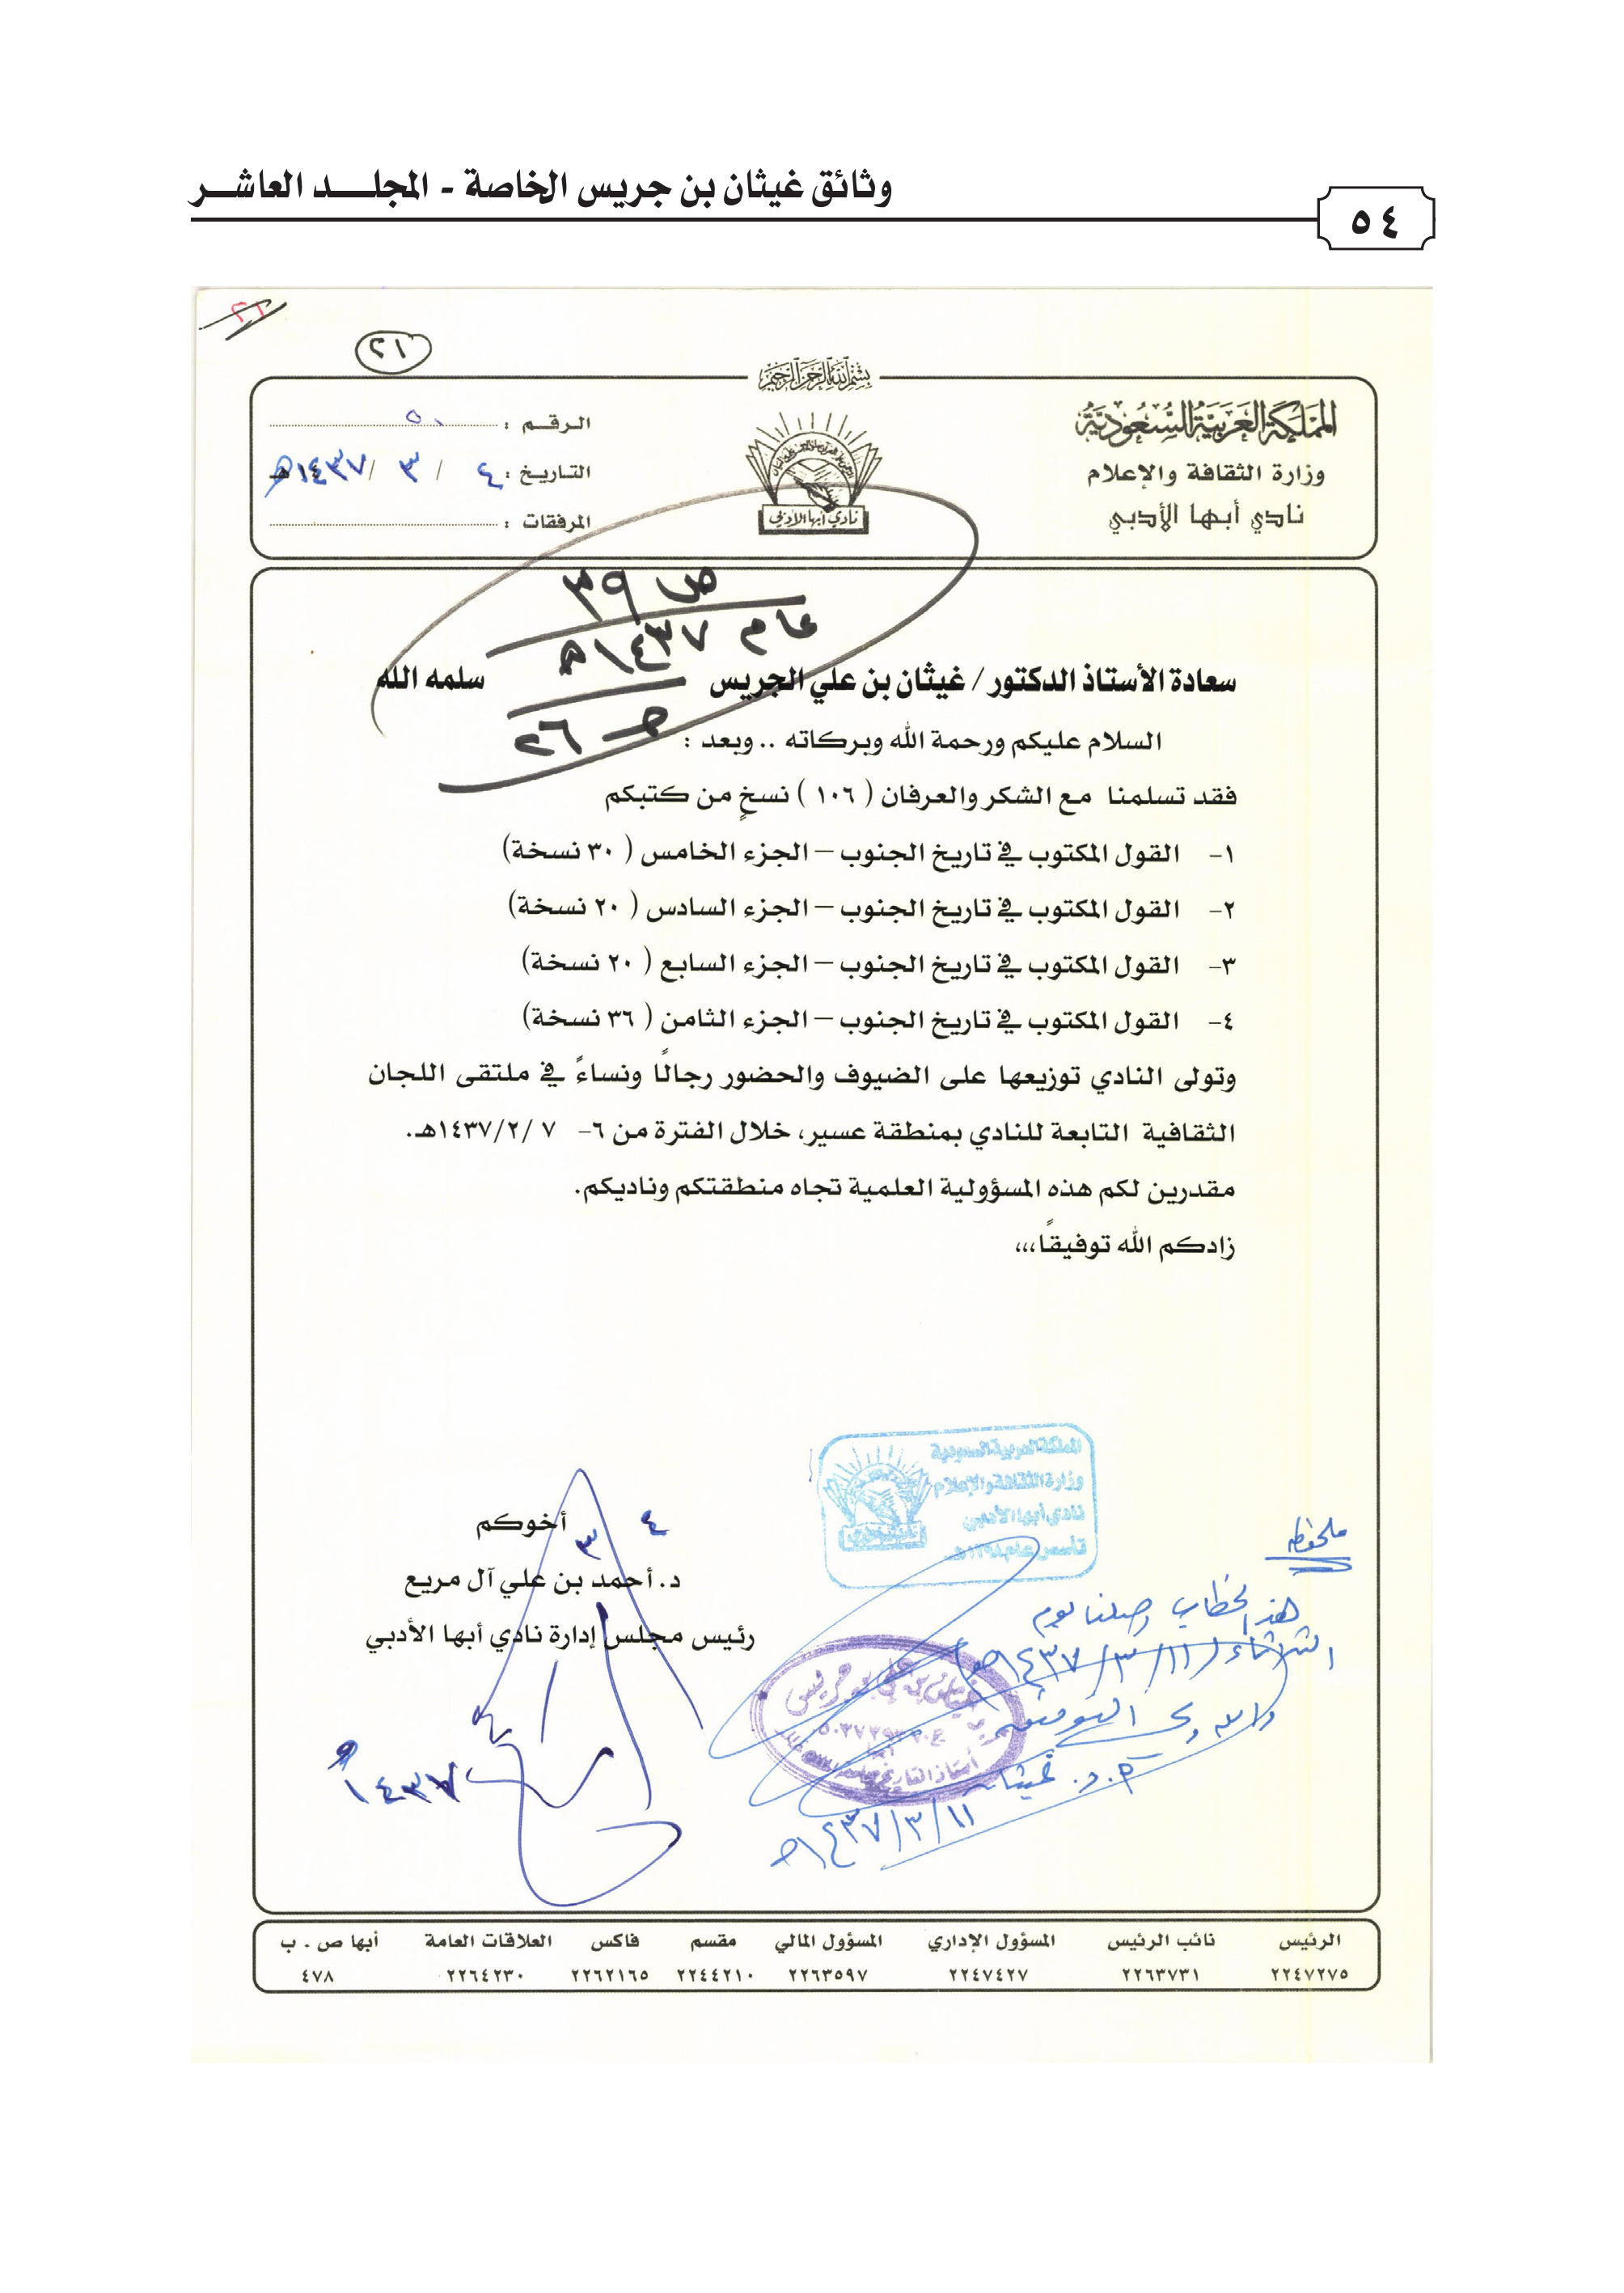 وثائق غيثان بن جريس الخاصة - المجلـــد العاشـــر
٥٤
٢١
٢١
بسم الله الرحمن الرحيم
المملكة العربية السعودية
وزارة الثقافة والإعلام
نادي أبها الأدبي
نادي أبها الأدبي
الرقـم : ٥٠
التاريخ : ٤ / ٣ / ١٤٣٧هـ
المرفقات :
ص ٣٩
عام ١٤٣٧هـ
حـ ٢٦
سعادة الأستاذ الدكتور / غيثان بن علي الجريس سلمه الله
السلام عليكم ورحمة الله وبركاته .. وبعد :
فقد تسلمنا مع الشكر والعرفان ( ١٠٦ ) نسخٍ من كتبكم
١- القول المكتوب في تاريخ الجنوب – الجزء الخامس ( ٣٠ نسخة)
٢- القول المكتوب في تاريخ الجنوب – الجزء السادس ( ٢٠ نسخة)
٣- القول المكتوب في تاريخ الجنوب – الجزء السابع ( ٢٠ نسخة)
٤- القول المكتوب في تاريخ الجنوب – الجزء الثامن ( ٣٦ نسخة)
وتولى النادي توزيعها على الضيوف والحضور رجالًا ونساءً في ملتقى اللجان
الثقافية التابعة للنادي بمنطقة عسير، خلال الفترة من ٦- ١٤٣٧/٢/ ٧هـ.
مقدرين لكم هذه المسؤولية العلمية تجاه منطقتكم وناديكم.
زادكم الله توفيقًا،،،
المملكة العربية السعودية
وزارة الثقافة والإعلام
نادي أبها الأدبي
تأسس عام ١٣٩٨هـ
أخوكم
د. أحمد بن علي آل مريع
رئيس مجلس إدارة نادي أبها الأدبي
٤
٣
١٤٣٧هـ
ملحوظة
هذا الخطاب وصلنا يوم
الثلاثاء (١١/٣/١٤٣٧هـ)
والله ولي التوفيق
أ.د. غيثان
١١/٣/١٤٣٧هـ
غيثان بن علي بن جريس
أستاذ التاريخ
الرئيس نائب الرئيس المسؤول الإداري المسؤول المالي مقسم فاكس العلاقات العامة أبها ص . ب
٢٢٤٧٢٧٥ ٢٢٦٣٧٣١ ٢٢٤٧٤٢٧ ٢٢٦٣٥٩٧ ٢٢٤٤٢١٠ ٢٢٦٢١٦٥ ٢٢٦٤٢٣٠ ٤٧٨